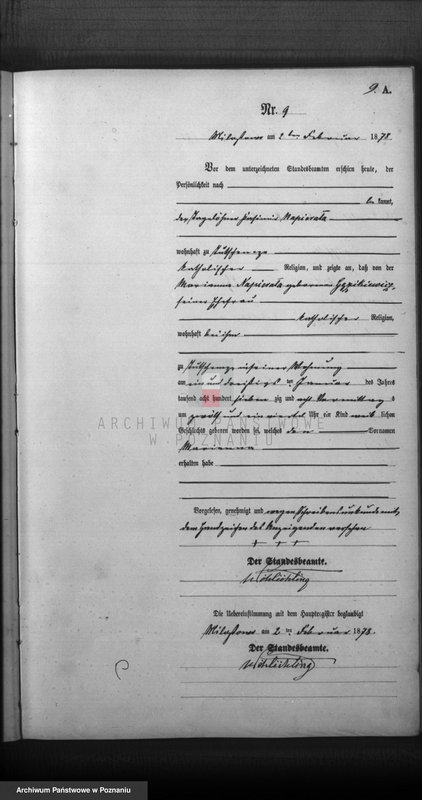 9. A.
Nr. 9
Miloslaw am 2 ten Februar 1878.
Vor dem unterzeichneten Standesbeamten erschien heute, der
Persönlichkeit nach
be kannt,
der Tagelöhner Casimir Napierala
wohnhaft zu
katholischer Religion, und zeigte an, daß von der
Marianna Napierala geborenen
seiner Ehefrau
katholischer Religion,
wohnhaft bei ihm
zu in seiner Wohnung
am ein und dreißigsten Januar des Jahres
tausend acht hundert sieben zig und acht Vormittag s
um und ein viertel Uhr ein Kind weib lichen
Geschlechts geboren worden sei, welches den Vornamen
Marianna
erhalten habe
Vorgelesen, genehmigt und wegen Schreibensunkunde mit
dem Handzeichen des Anzeigenden versehen
+ + +
Der Standesbeamte.
Die Uebereinstimmung mit dem Hauptregister beglaubigt
Miloslaw am 2 ten Februar 1878.
Der Standesbeamte.
ARCHIWUM PAŃSTWOWE
W POZNANIU
Archiwum Państwowe w Poznaniu